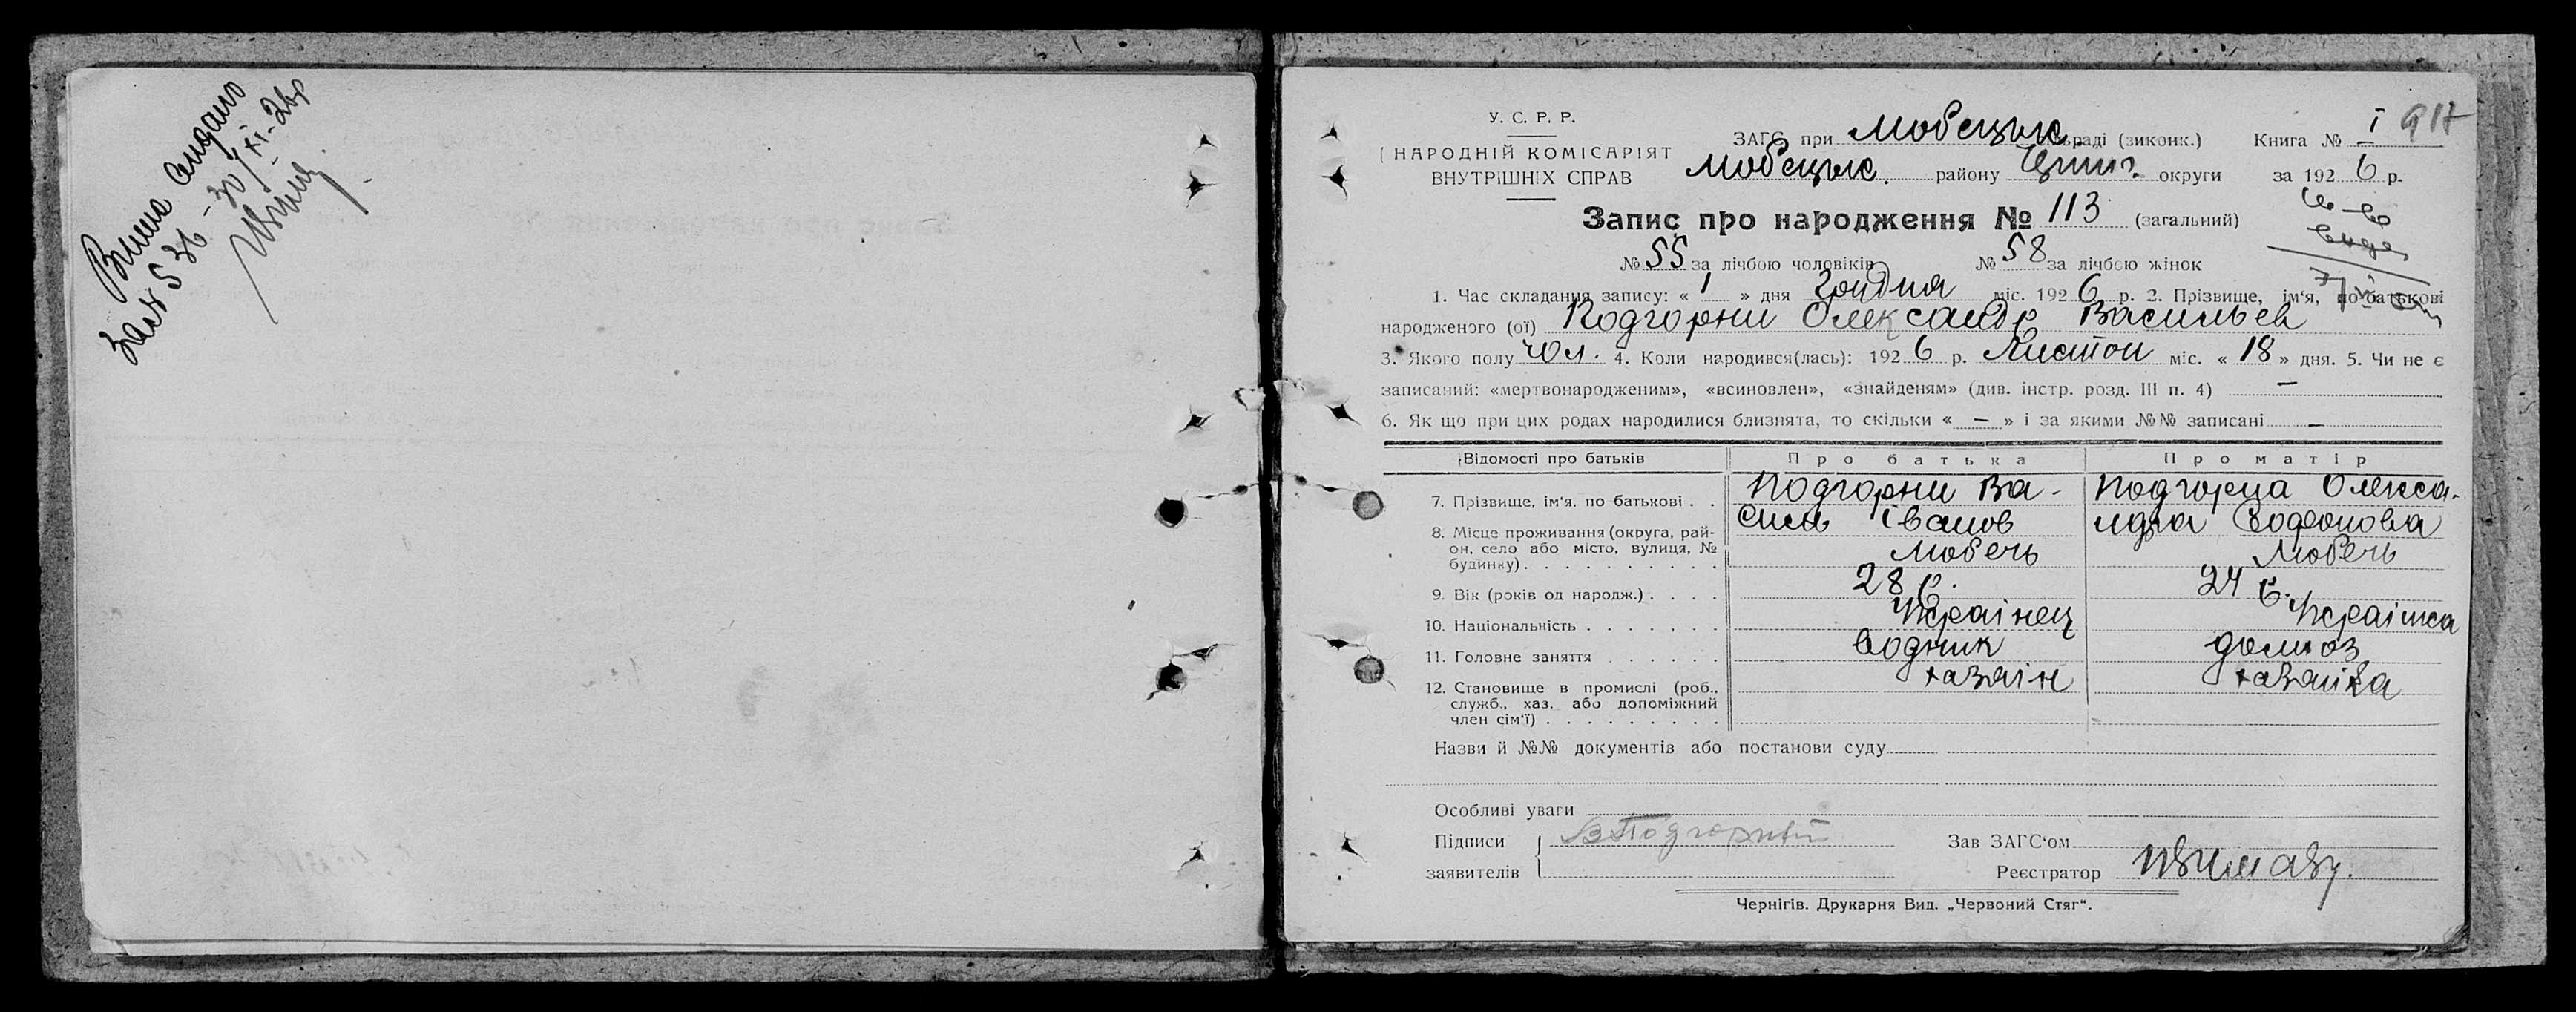 Випис видано
У. С. Р. Р.
НАРОДНІЙ КОМІСАРІЯТ
ВНУТРІШНІХ СПРАВ
ЗАГС при Любецьк. раді (виконк.)
Книга № I
917
Любецьк. району округи за 1926 р.
Запис про народження № 113 (загальний)
№ 55 за лічбою чоловіків № 58 за лічбою жінок
1. Час складання запису: « 1 » дня Грудня міс. 1926 р. 2. Прізвище, ім'я, по батькові
народженого (ої) Подгорни Олександр Васильев
3. Якого полу чол. 4. Коли народився(лась): 1926 р. Листоп міс. « 18 » дня. 5. Чи не є
записаний: «мертвонародженим», «всиновлен», «знайденям» (див. інстр. розд. III п. 4) —
6. Як що при цих родах народилися близнята, то скільки « — » і за якими №№ записані —
Відомості про батьків Про батька Про матір
7. Прізвище, ім'я, по батькові . . Подгорни Ва- Подгорна Олекса-
силь Іванов ндра
8. Місце проживання (округа, рай-
он, село або місто, вулиця, №
будинку) . . . . . . . . . . Любечь Любечь
9. Вік (років од народж.) . . . . 28 р. 24 р.
10. Національність . . . . . . . Українец Українка
11. Головне заняття . . . . . . водник домгоз
12. Становище в промислі (роб., хазяін хазяйка
служб., хаз. або допоміжний
член сім'ї) . . . . . . . . .
Назви й №№ документів або постанови суду
Особливі уваги
Підписи
заявителів
ВПодгорний
Зав ЗАГС'ом
Реєстратор
Чернігів. Друкарня Вид. „Червоний Стяг".